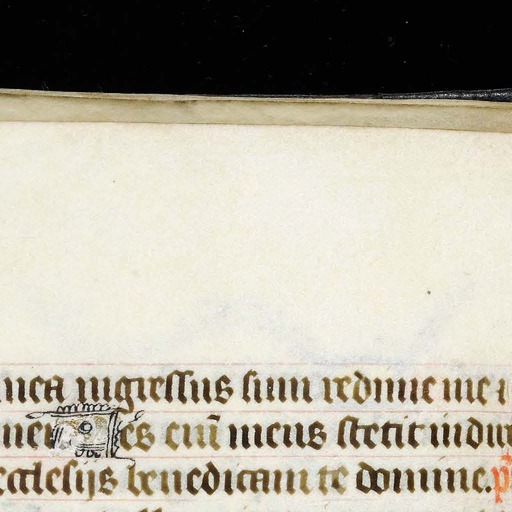 mea ingressus sum redime me
mei pes eni meus stetit in
ecclesijs benedicam te domine. p